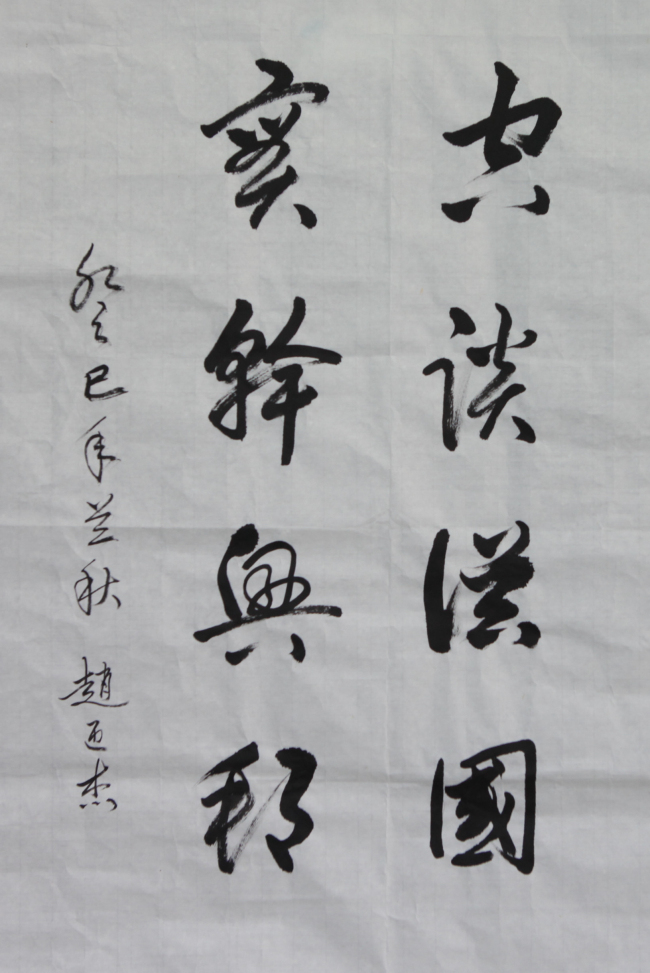 空談誤國
實幹興邦
癸巳年兰秋 趙 杰